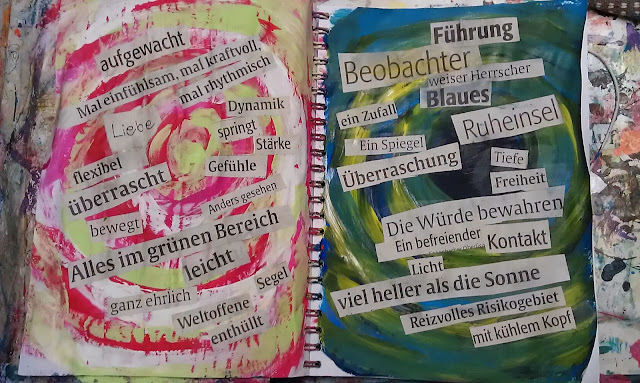 aufgewacht
Mal einfühlsam, mal kraftvoll,
mal rhythmisch
Liebe
Dynamik
springt
Stärke
flexibel
Gefühle
überrascht
Anders gesehen
bewegt
Alles im grünen Bereich
leicht
Segel
ganz ehrlich
Weltoffene
enthüllt
Führung
Beobachter
weiser Herrscher
Blaues
ein Zufall
Ruheinsel
Ein Spiegel
Überraschung
Tiefe
Freiheit
Die Würde bewahren
Ein befreiender
Kontakt
Licht
viel heller als die Sonne
Reizvolles Risikogebiet
mit kühlem Kopf